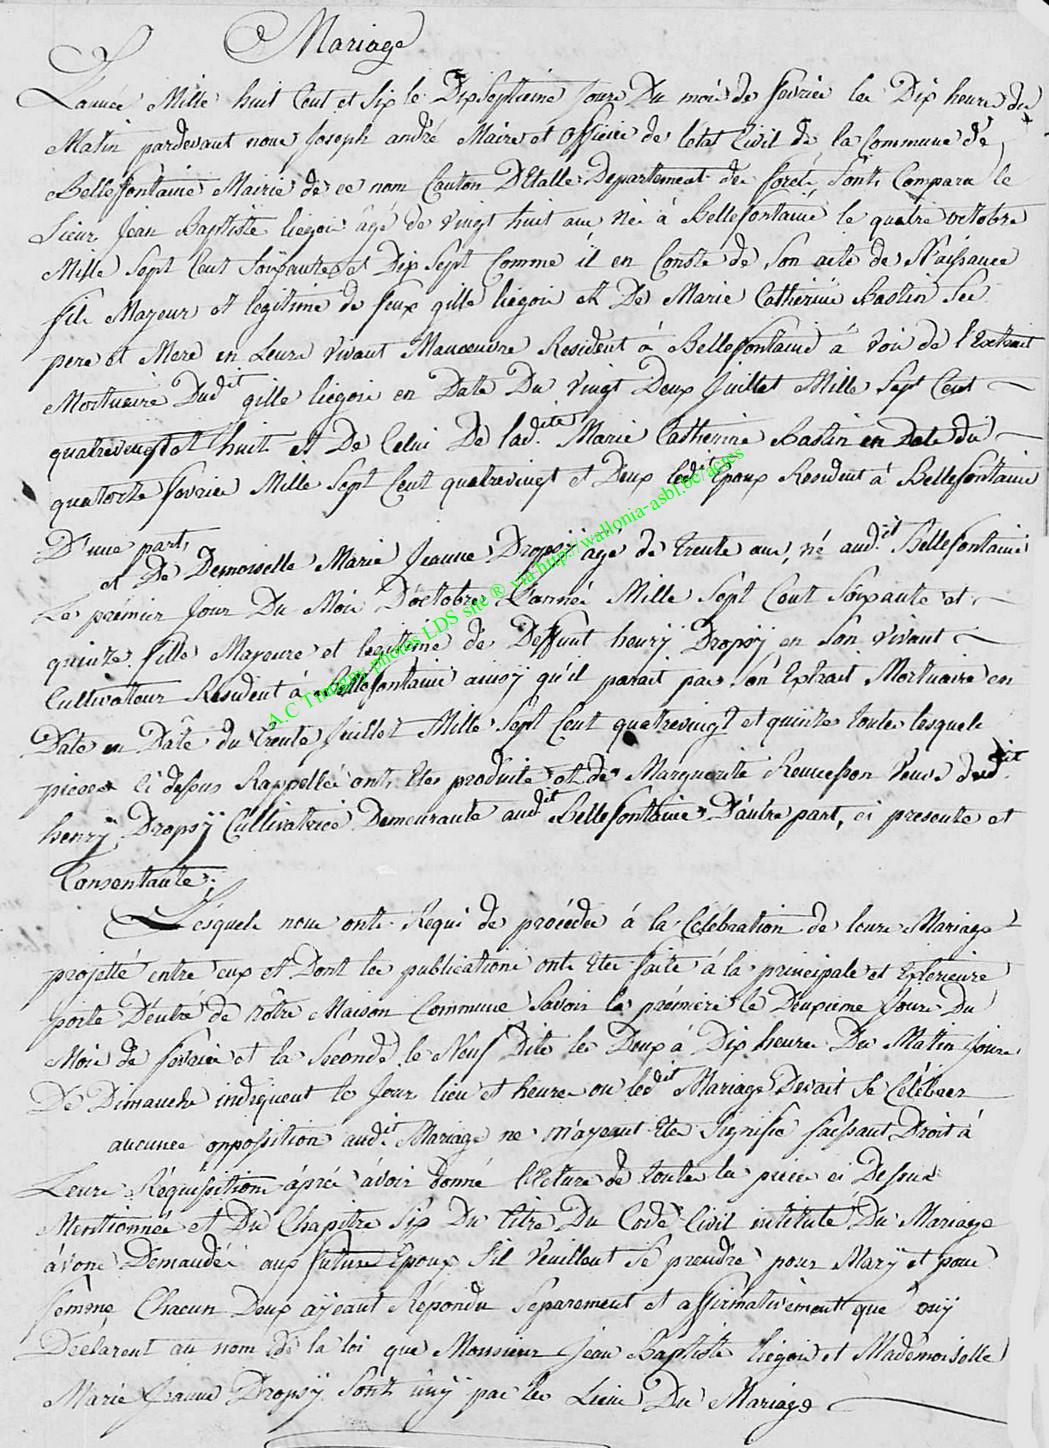 Mariage
L'année Mille huit Cent et Six le Dixseptieme Jours Du mois de fevrier les Dix heures du
Matin pardevant nous Joseph andré Maire et officier de l'etat Civil de la Commune de
Bellefontaine Mairie de ce nom Canton D'Etalle Departement des forets, Sont Comparu le
Sieur Jean Baptiste liegois âgé de vingt huit ans, Né à Bellefontaine le quatre octobre
Mille Sept Cent Soixante et Dix Sept Comme il en Conste de Son acte de Naissance
fils Mayeur et legitime de feux gille liegois et De Marie Catherine Baslin Ses
pere et Mere en Leurs vivant Manoeuvre Resident à Bellefontaine à voir de l'Extrait
Mortuaire Dudit gille liegois en Date Du vingt Deux Juillet Mille Sept Cent
quatrevingt et huit et De Celui De ladite Marie Catherine Baslin en Date du
quatorze fevrier Mille Sept Cent quatrevingt et Deux ledit Epoux Resident à Bellefontaine
D'une part,
et De Demoiselle Marie Jeanne Dropsÿ âgé de trente ans, né audit Bellefontaine
Le prémier Jour Du Mois D'octobre L'année Mille Sept Cent Soixante et
quinze fille Mayeure et legitime de Deffunt henrÿ Dropsÿ en Son vivant
Cultivateur Resident à Bellefontaine ainsÿ qu'il parait par Son Extrait Mortuaire en
Date en Date du trente Juillet Mille Sept Cent quatrevingt et quinze toutes lesquels
pieces ci dessus Rappellée ont Etes produite et de Marguerite Remesson veuve dudit
henrÿ Dropsÿ Cultivatrice Demeurante audit Bellefontaine D'autre part, ci presente et
Consentante;
Lesquels nous ont Requi de procéder à la Célébration de leurs Mariage
projetté entre eux et Dont les publications ont Etes faite à la principale et Exterieure
porte D'entre de nôtre Maison Commune Savoir la prémiere le Deuxieme Jours Du
Mois de fevrier et la Seconde le Neuf Dite les Deux à Dix heures Du Matin Jours
De Dimanche indiquent le Jour lieu et heures ou ledit Mariage Devait Se Célébrer
aucunee opposition audit Mariage ne m'ayeant Ete Signifie faissant Droit à
Leurs Réquisition áprés ávoir donné lecture de toutes les pieces ci Dessus
Mentionnée et Du Chapitre Six Du titre Du Code Civil intitulé Du Mariage
ávons Demandée aux future Epoux S'il veuillent Se prendre pour Marÿ et pour
fémme Chacun Deux aÿeant Répondu Separement et affirmativement que ouÿ
Declarent au nom de la loi que Monsieur Jean Baptiste liegois et Mademoiselle
Marie Jeanne Dropsÿ Sont unÿ par les Liens Du Mariage
A.C Tintigny photos LDS site ® via http://wallonia-asbl.be/actes